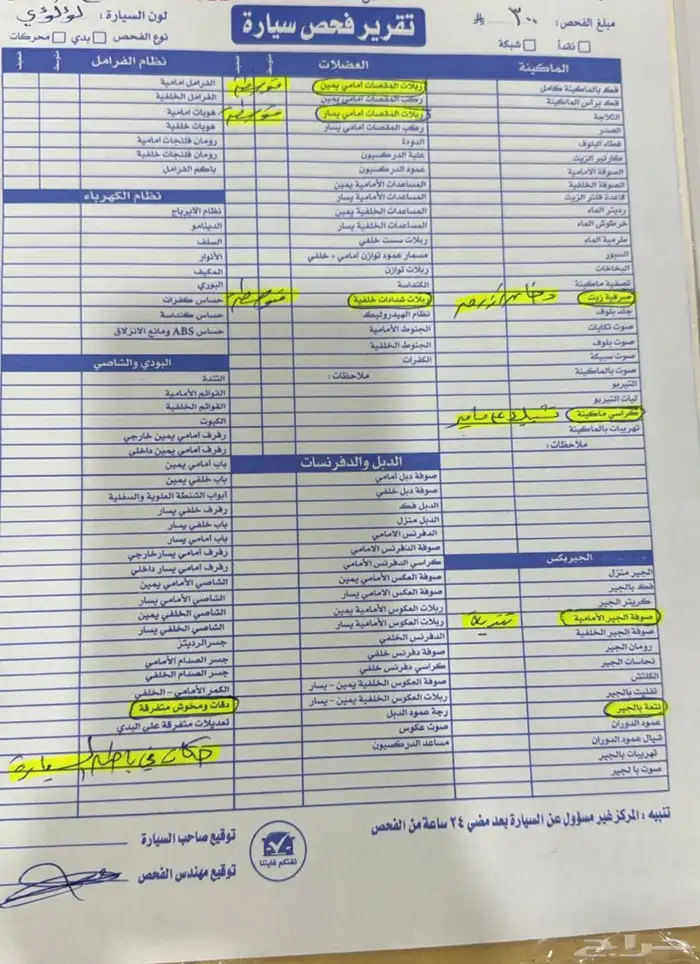 مبلغ الفحص : ٣٠٠
نقداً شبكة
تقرير فحص سيارة
لون السيارة : لؤلؤي
نوع الفحص : بدي محركات
الماكينة
فك بالماكينة كامل
فك براس الماكينة
الثلاجة
الصدر
غطاء البلوف
كارتير الزيت
الصوفة الامامية
الصوفة الخلفية
قاعدة فلتر الزيت
رديتر الماء
خرطوش الماء
طرمبة الماء
السيور
البخاخات
تصفية ماكينة
صرفية زيت
جلد بلوف
صوت تكايات
صوت بلوف
صوت سبيكة
صوت بالماكينة
التيربو
ليات التيربو
كراسي ماكينة
تهريبات بالماكينة
ملاحظات :
الجيربكس
الجير منزل
فك بالجير
كريتر الجير
صوفة الجير الأمامية
صوفة الجير الخلفية
رومان الجير
نحاسات الجير
الكلتش
تفليت بالجير
نتعة بالجير
عمود الدوران
شيال عمود الدوران
تهريبات بالجير
صوت با لجير
العضلات
متوسط
ضعيف
ربلات المقصات امامي يمين متوسطه
ركب المقصات امامي يمين
ربلات المقصات امامي يسار متوسطه
ركب المقصات امامي يسار
الدودة
علبة الدركسيون
عمود الدركسيون
المساعدات الأمامية يمين
المساعدات الأمامية يسار
المساعدات الخلفية يمين
المساعدات الخلفية يسار
ربلات سست خلفي
مسمار عمود توازن أمامي + خلفي
ربلات توازن
الكنداسة
ربلات شدادات خلفية متوسطه
نظام الهيدروليك
الجنوط الأمامية
الجنوط الخلفية
الكفرات
ملاحظات :
الدبل والدفرنسات
صوفة دبل أمامي
صوفة دبل خلفي
الدبل فك
الدبل منزل
الدفرنس الامامي
صوفة الدفرنس الامامي
كراسي الدفرنس الأمامي
صوفة العكس الأمامي يمين
صوفة العكس الامامي يسار
ربلات العكوس الأمامية يمين
ربلات العكوس الأمامية يسار
الدفرنس الخلفي
صوفة دفرنس خلفي
كراسي دفرنس خلفي
صوفة العكوس الخلفية يمين - يسار
ربلات العكوس الخلفية يمين - يسار
رجة عمود الدبل
صوت عكوس
مساعد الدركسيون
نظام الفرامل
متوسط
ضعيف
الفرامل امامية
الفرامل الخلفية
هوبات امامية
هوبات خلفية
رومان فلنجات امامية
رومان فلنجات خلفية
باكم الفرامل
نظام الكهرباء
نظام الايرباج
الدينامو
السلف
الأنوار
المكيف
البوري
حساس كفرات
حساس كنداسة
حساس ABS ومانع الانزلاق
البودي والشاصي
التندة
القوائم الأمامية
القوائم الخلفية
الكبوت
رفرف امامي يمين خارجي
رفرف أمامي يمين داخلي
باب أمامي يمين
باب خلفي يمين
ابواب الشنطة العلوية والسفلية
رفرف خلفي يسار
باب خلفي يسار
باب أمامي يسار
رفرف أمامي يسار خارجي
رفرف أمامي يسار داخلي
الشاصي الأمامي يمين
الشاصي الأمامي يسار
الشاصي الخلفي يمين
الشاصي الخلفي يسار
جسر الرديتر
جسر الصدام الأمامي
جسر الصدام الخلفي
الكمر الأمامي - الخلفي
دقات وخوش متفرقة
تعديلات متفرقة على البدي
حكات في باطن السيارة
تنبيه : المركز غير مسؤول عن السيارة بعد مضي ٢٤ ساعة من الفحص
ثقتكم غايتنا
توقيع صاحب السيارة
توقيع مهندس الفحص
حراج